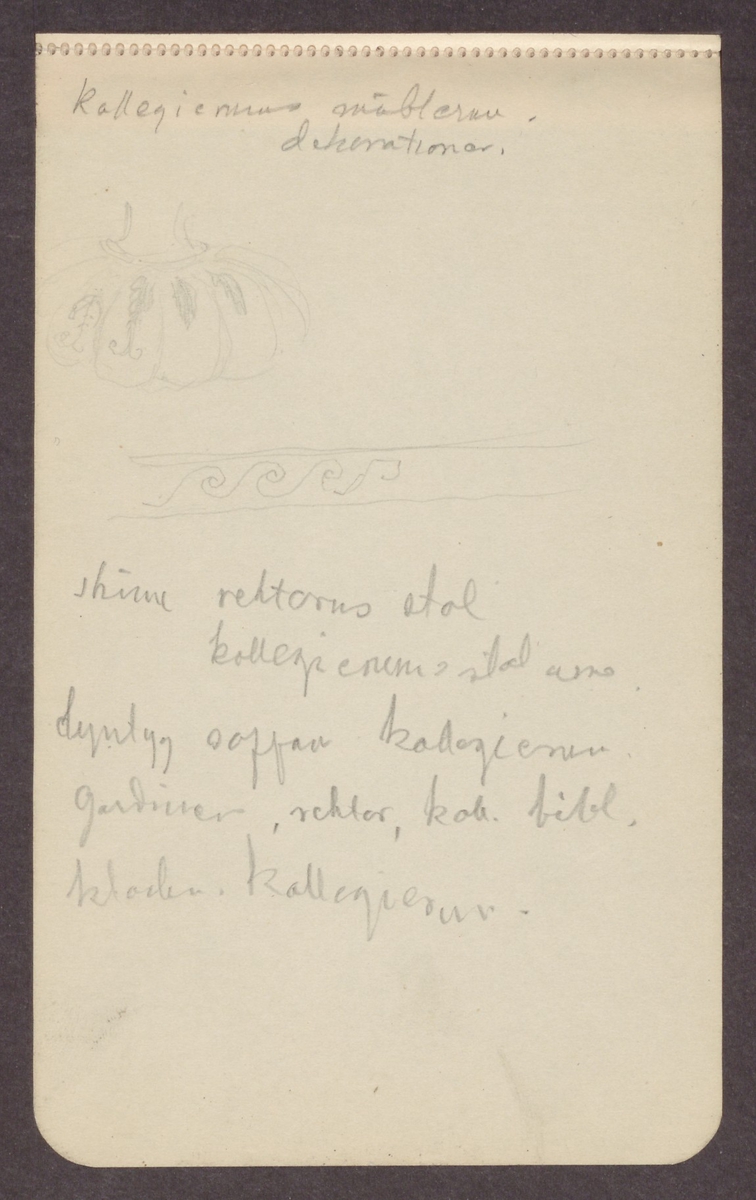 Kollegierums möblerau.
dekorationer.
skinn rektorns stol
kollegierums stol
soffan kollegierum.
Gardiner, rektor, koll. bibl.
klockan. Kollegierum.